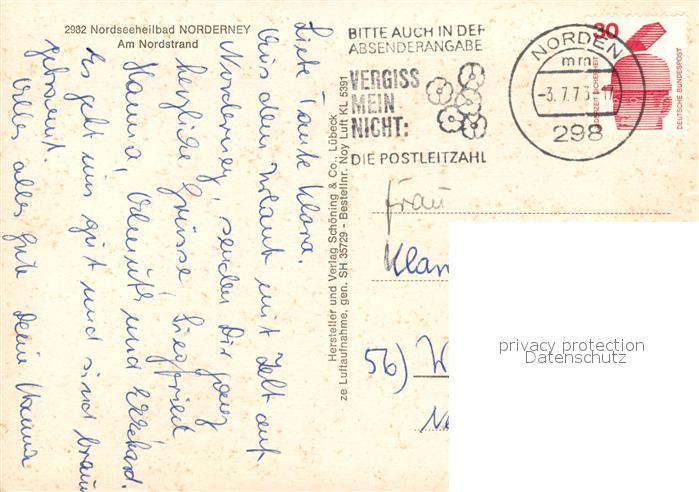 2982 Nordseeheilbad NORDERNEY
Am Nordstrand
Liebe Tante Klara.
Aus dem Urlaub mit Zelt auf
Norderney, senden Dir ganz
herzliche Grüsse Siegfried
Hanna, Almuth und Ekkehard.
Es geht uns gut und sind braun
gebrannt.
Alles alles Gute Deine Hanna
Hersteller und Verlag Schöning & Co., Lübeck
ze Luftaufnahme, gen. SH 35729 - Bestellnr. Noy Luft KL 5391
BITTE AUCH IN DER
ABSENDERANGABE
VERGISS
MEIN
NICHT:
DIE POSTLEITZAHL
NORDEN
mm
-3.7.73-17
298
30
DEUTSCHE BUNDESPOST
Frau
Klara
56) W
privacy protection
Datenschutz